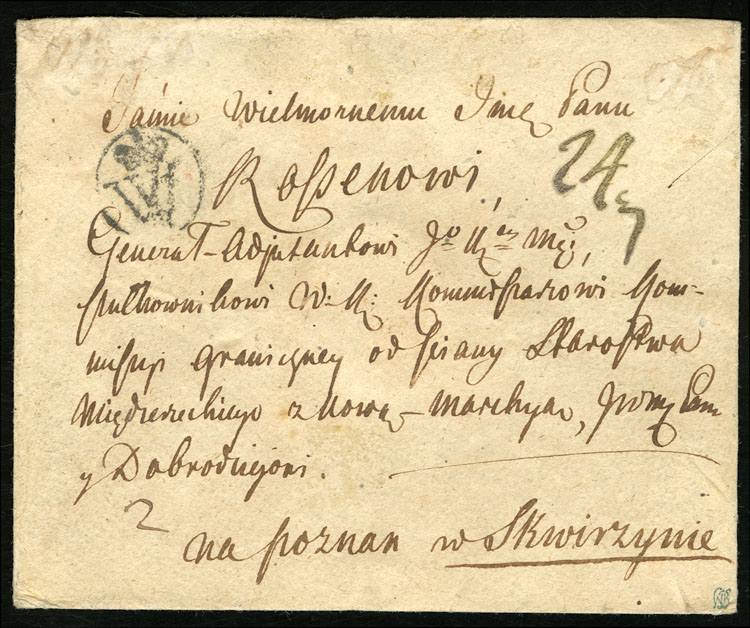 Jaśnie Wielmożnemu Jmę Panu
Rossenowi,
24
Generał-Adjutantowi
Pułkownikowi W: K: Kommissarzowi Kom-
missyi Graniczney od sciany Starostwa
Międzyrzeckiego z Nową-Marchyą, Panu
y Dobrodziejowi.
2
na poznan w Skwirzynie